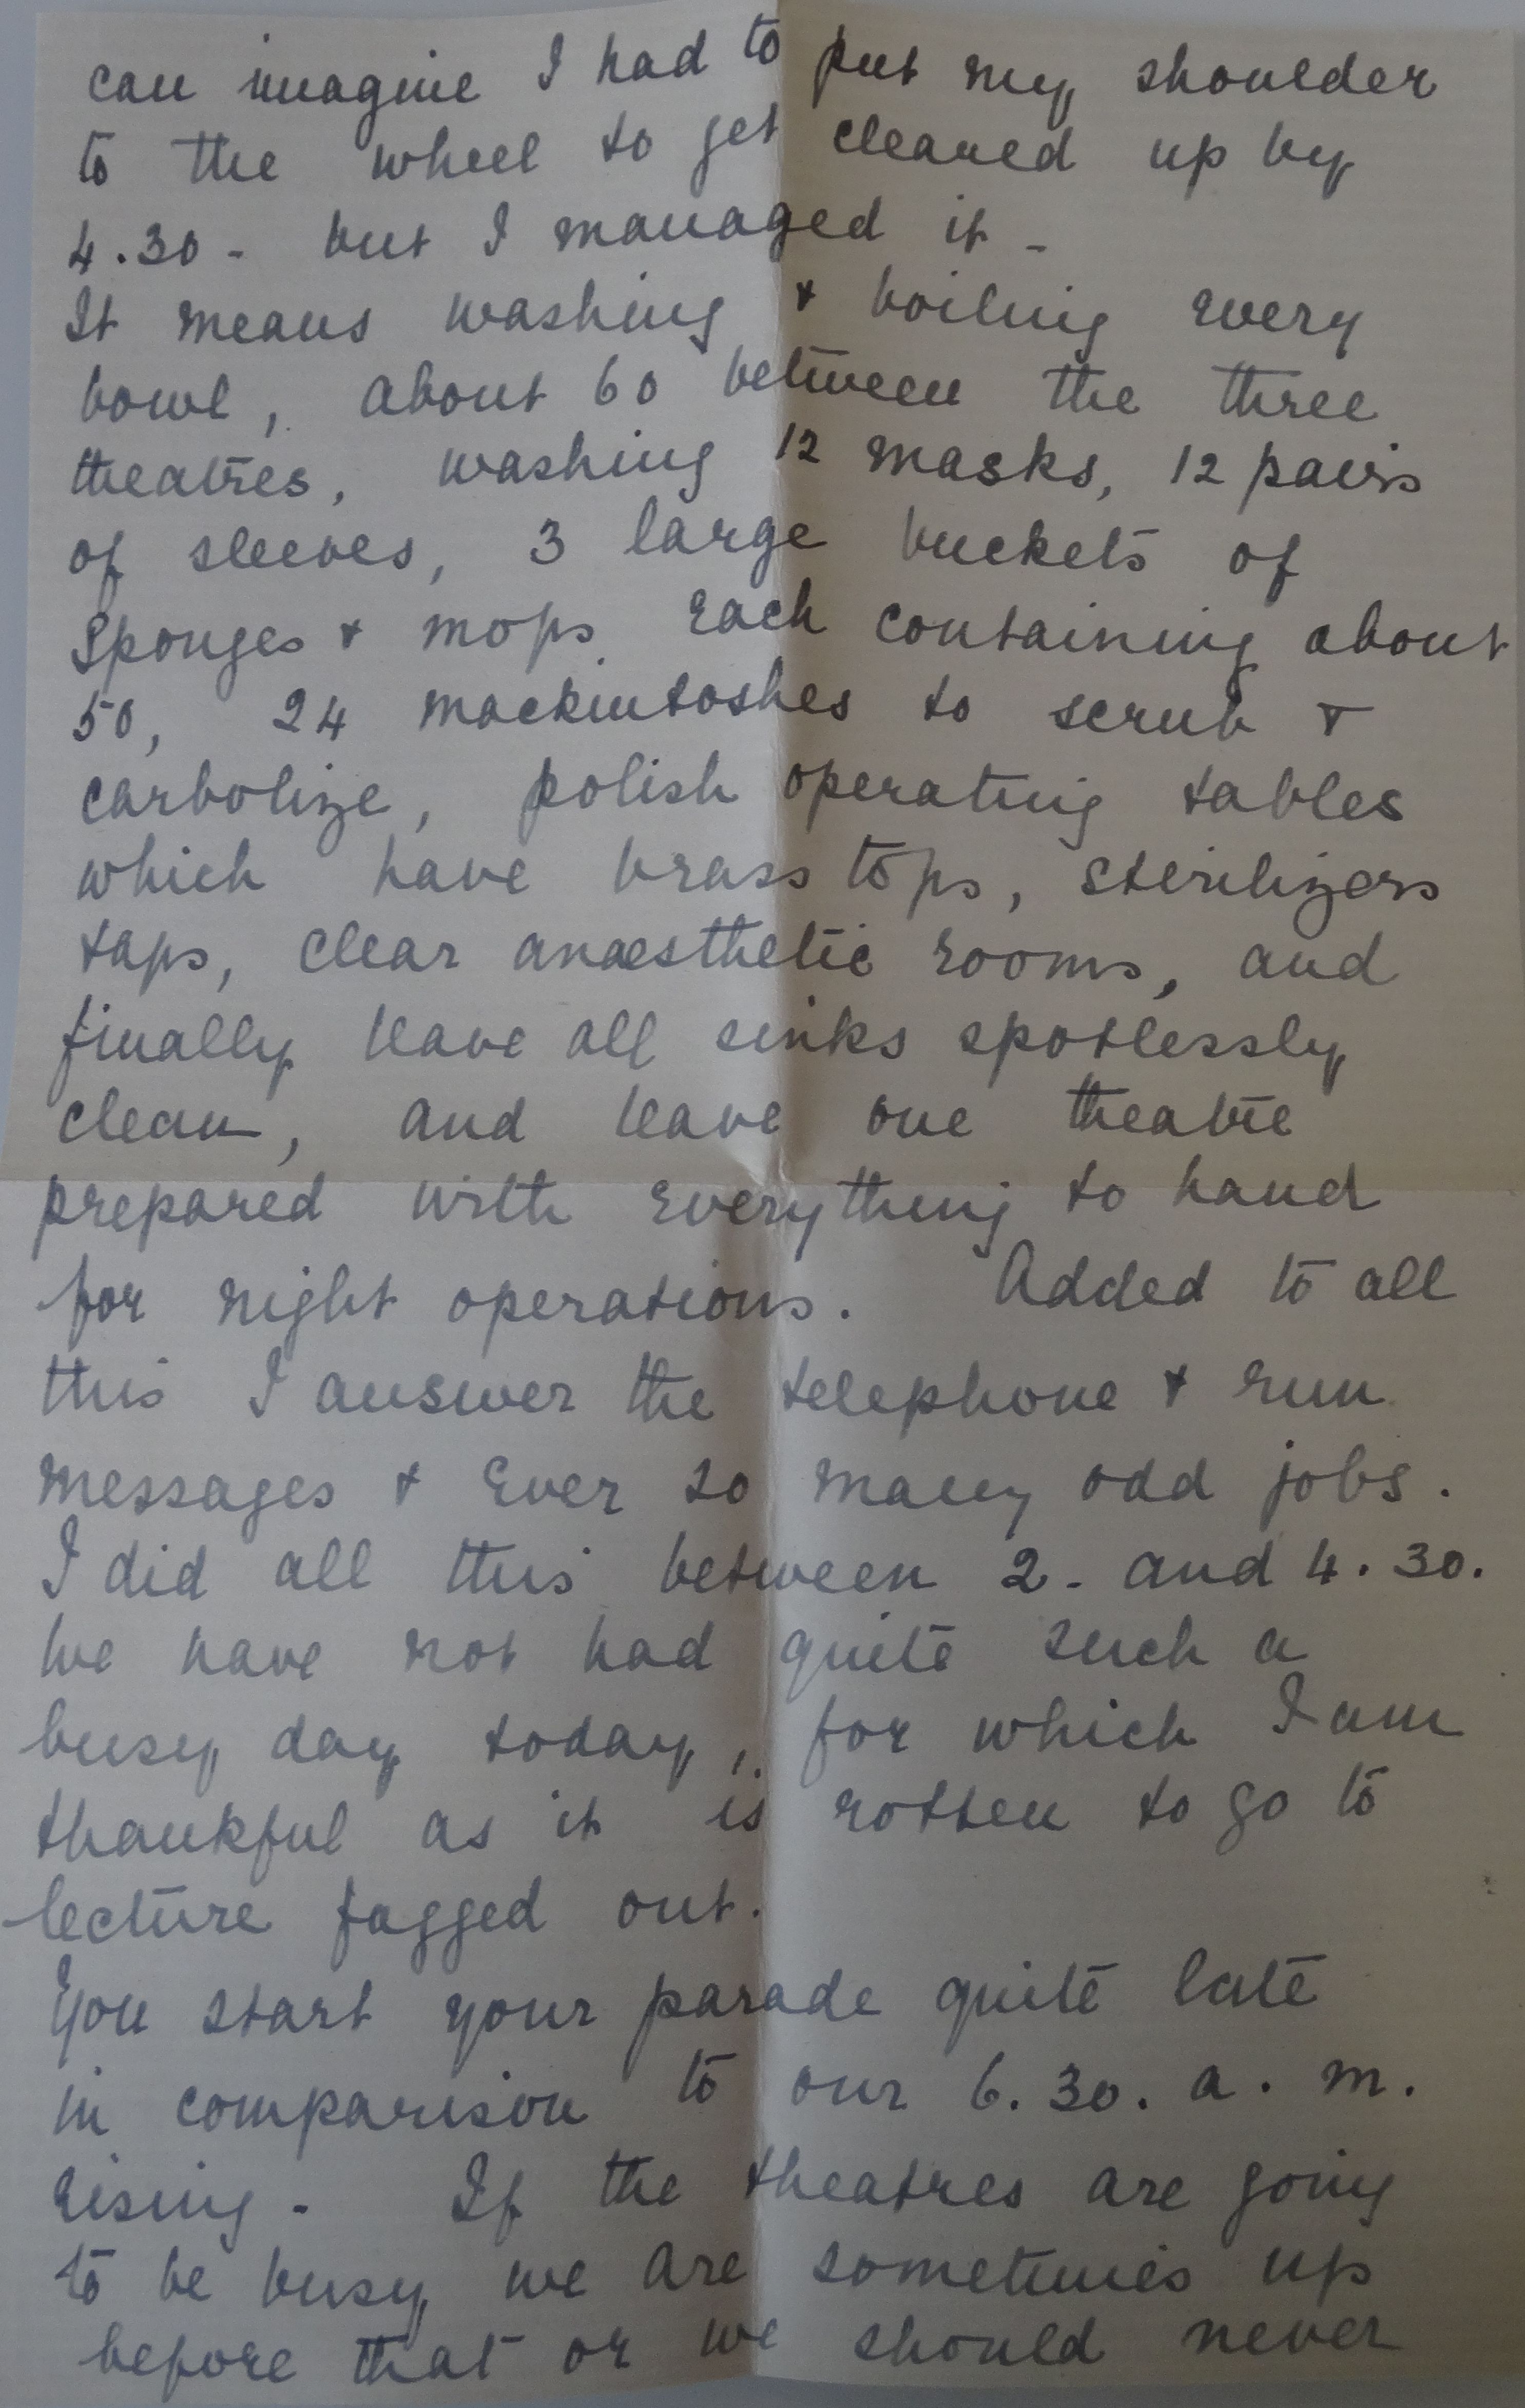 can imagine I had to put my shoulder
to the wheel to get cleaned up by
4.30 - but I managed it -
It means washing & boiling every
bowl, about 60 between the three
theatres, washing 12 masks, 12 pairs
of sleeves, 3 large buckets of
sponges & mops each containing about
50, 24 mackintoshes to scrub &
carbolize, polish operating tables
which have brass tops, sterilizers
taps, clear anaesthetic rooms, and
finally leave all sinks spotlessly
clean, and leave one theatre
prepared with everything to hand
for night operations. Added to all
this I answer the telephone & run
messages & ever so many odd jobs.
I did all this between 2 - and 4.30.
We have not had quite such a
busy day today, for which I am
thankful as it is rotten to go to
lecture fagged out.
You start your parade quite late
in comparison to our 6.30. a.m.
rising - If the theatres are going
to be busy we are sometimes up
before that or we should never